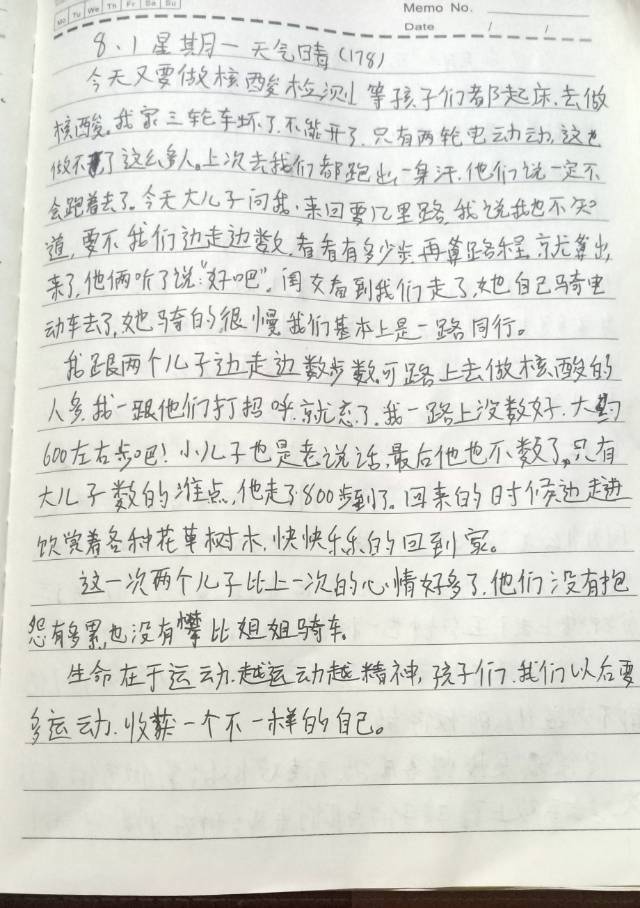 Mo Tu We Th Fr Sa Su
Memo No.
Date / /
8、1 星期一 天气晴 (178)
今天又要做核酸检测 等孩子们都起床.去做
核酸。我家三轮车坏了.不能开了.只有两轮电动动,这也
做不了这么多人。上次去我们都跑出一身汗.他们说一定不
会跑着去了.今天大儿子问我.来回要几里路.我说我也不知
道,要不我们边走边数.看看有多少步再算路程.就无算出
来了,他俩听了说:“好吧”。闺女看到我们走了,她自己骑电
动车去了,她骑的很慢我们基本上是一路同行。
我跟两个儿子边走边数步数.可路上去做核酸的
人多.我一跟他们打招呼.就忘了.我一路上没数好.大约
600左右步吧！小儿子也是老说话,最后他也不数了,只有
大儿子数的准点,他走了800步到了.回来的时候边走进
饮赏着各种花草树木.快快乐乐的回到家。
这一次两个儿子比上一次的心情好多了.他们没有抱
怨有多累,也没有攀比姐姐骑车。
生命在于运动.越运动越精神,孩子们.我们以后要
多运动.收获一个不一样的自己。